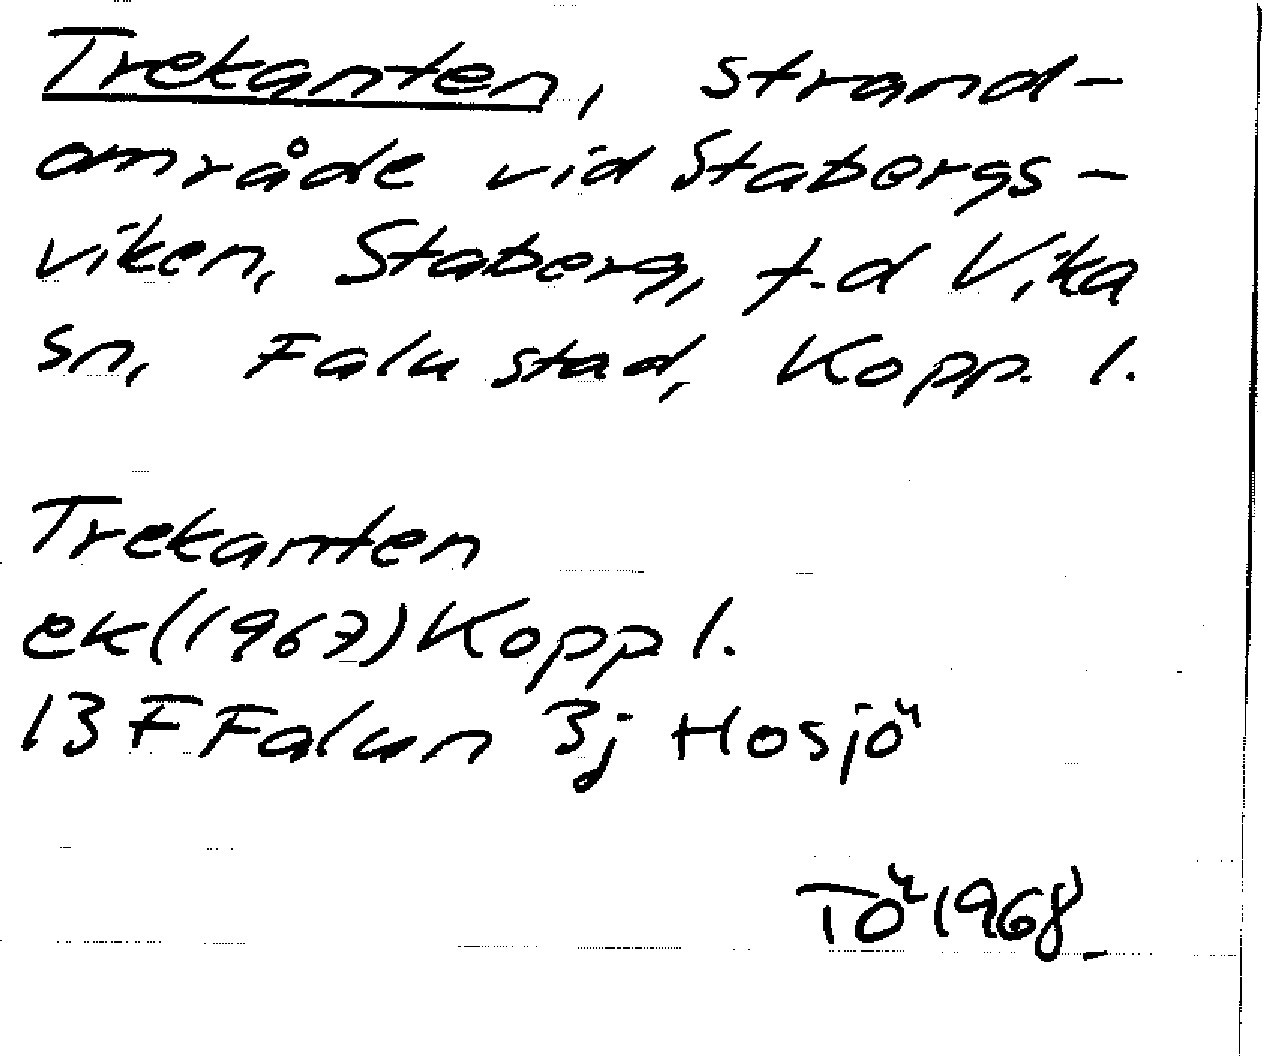 Trekanten, strand-
område vid Stabergs-
viken, Staberg, f.d Vika
sn, Falu stad, Kopp. l.
Trekanten
ek(1967) Kopp l.
13 F Falun 3j Hosjö
TÖ 1968